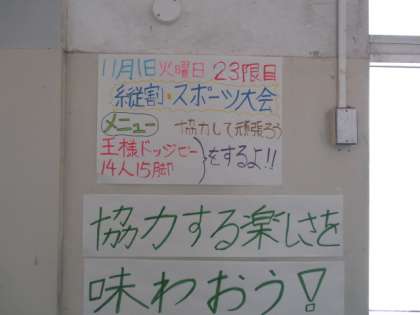 11月1日火曜日 23限目
縦割・スポーツ大会
メニュー 協力して頑張ろう
王様ドッジビー
14人15脚 をするよ!!
協力する楽しさを
味わおう!